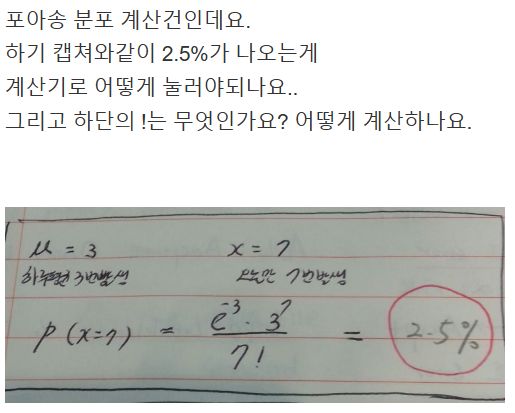 포아송 분포 계산건인데요.
하기 캡쳐와같이 2.5%가 나오는게
계산기로 어떻게 눌러야되나요..
그리고 하단의 !는 무엇인가요? 어떻게 계산하나요.
μ = 3 x = 7
하루평균 3번발생 오늘만 7번발생
p (x=7) = e⁻³·3⁷ / 7! = 2.5%